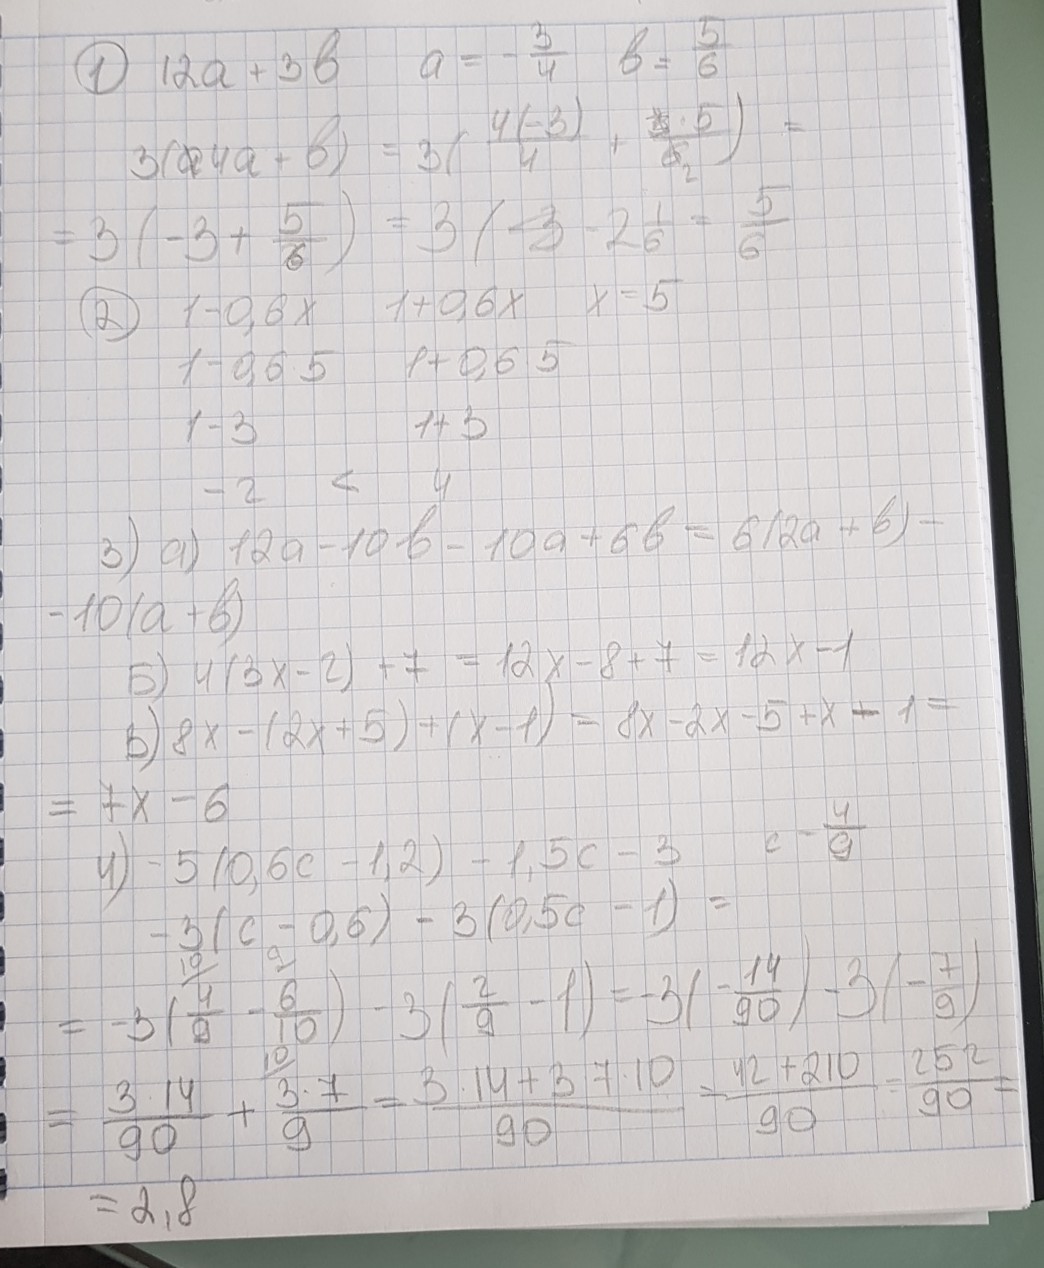 1) 12a + 3b a = - 3/4 b = 5/6
3(4a + b) = 3( 4(-3)/4 + 5/2 ) =
= 3( -3 + 5/6 ) = 3( -3 - 2 1/6 = 5/6
2) 1-0,6x 1+0,6x x=5
1-0,6 5 1+0,6 5
1-3 1+3
-2 < 4
3) а) 12a - 10b - 10a + 6b = 6(2a + b) -
-10(a + b)
Б) 4(3x-2) + 7 = 12x - 8 + 7 = 12x - 1
В) 8x - (2x+5) + (x-1) = 8x - 2x - 5 + x - 1 =
= 7x - 6
4) -5(0,6c - 1,2) - 1,5c - 3 c - 4/9
-3(c - 0,6) - 3(0,5c - 1) =
= -3( 10/ 4/9 - 9/ 6/10 ) - 3( 2/9 - 1) = -3( - 14/90 ) - 3( - 7/9 )
= 3·14/90 + 10/ 3·7/9 = 3·14+3 7·10/90 = 42+210/90 = 252/90 =
= 2,8